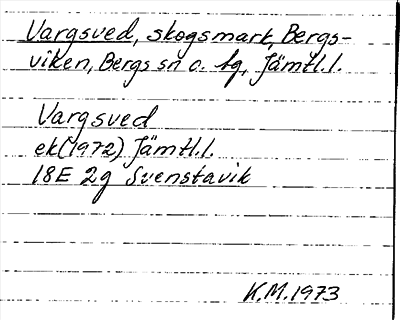 Vargsved, skogsmark, Bergs-
viken, Bergs sn o. hg, Jämtl. l.
Vargsved
ek (1972) Jämtl. l.
18E 2g Svenstavik
K.M. 1973